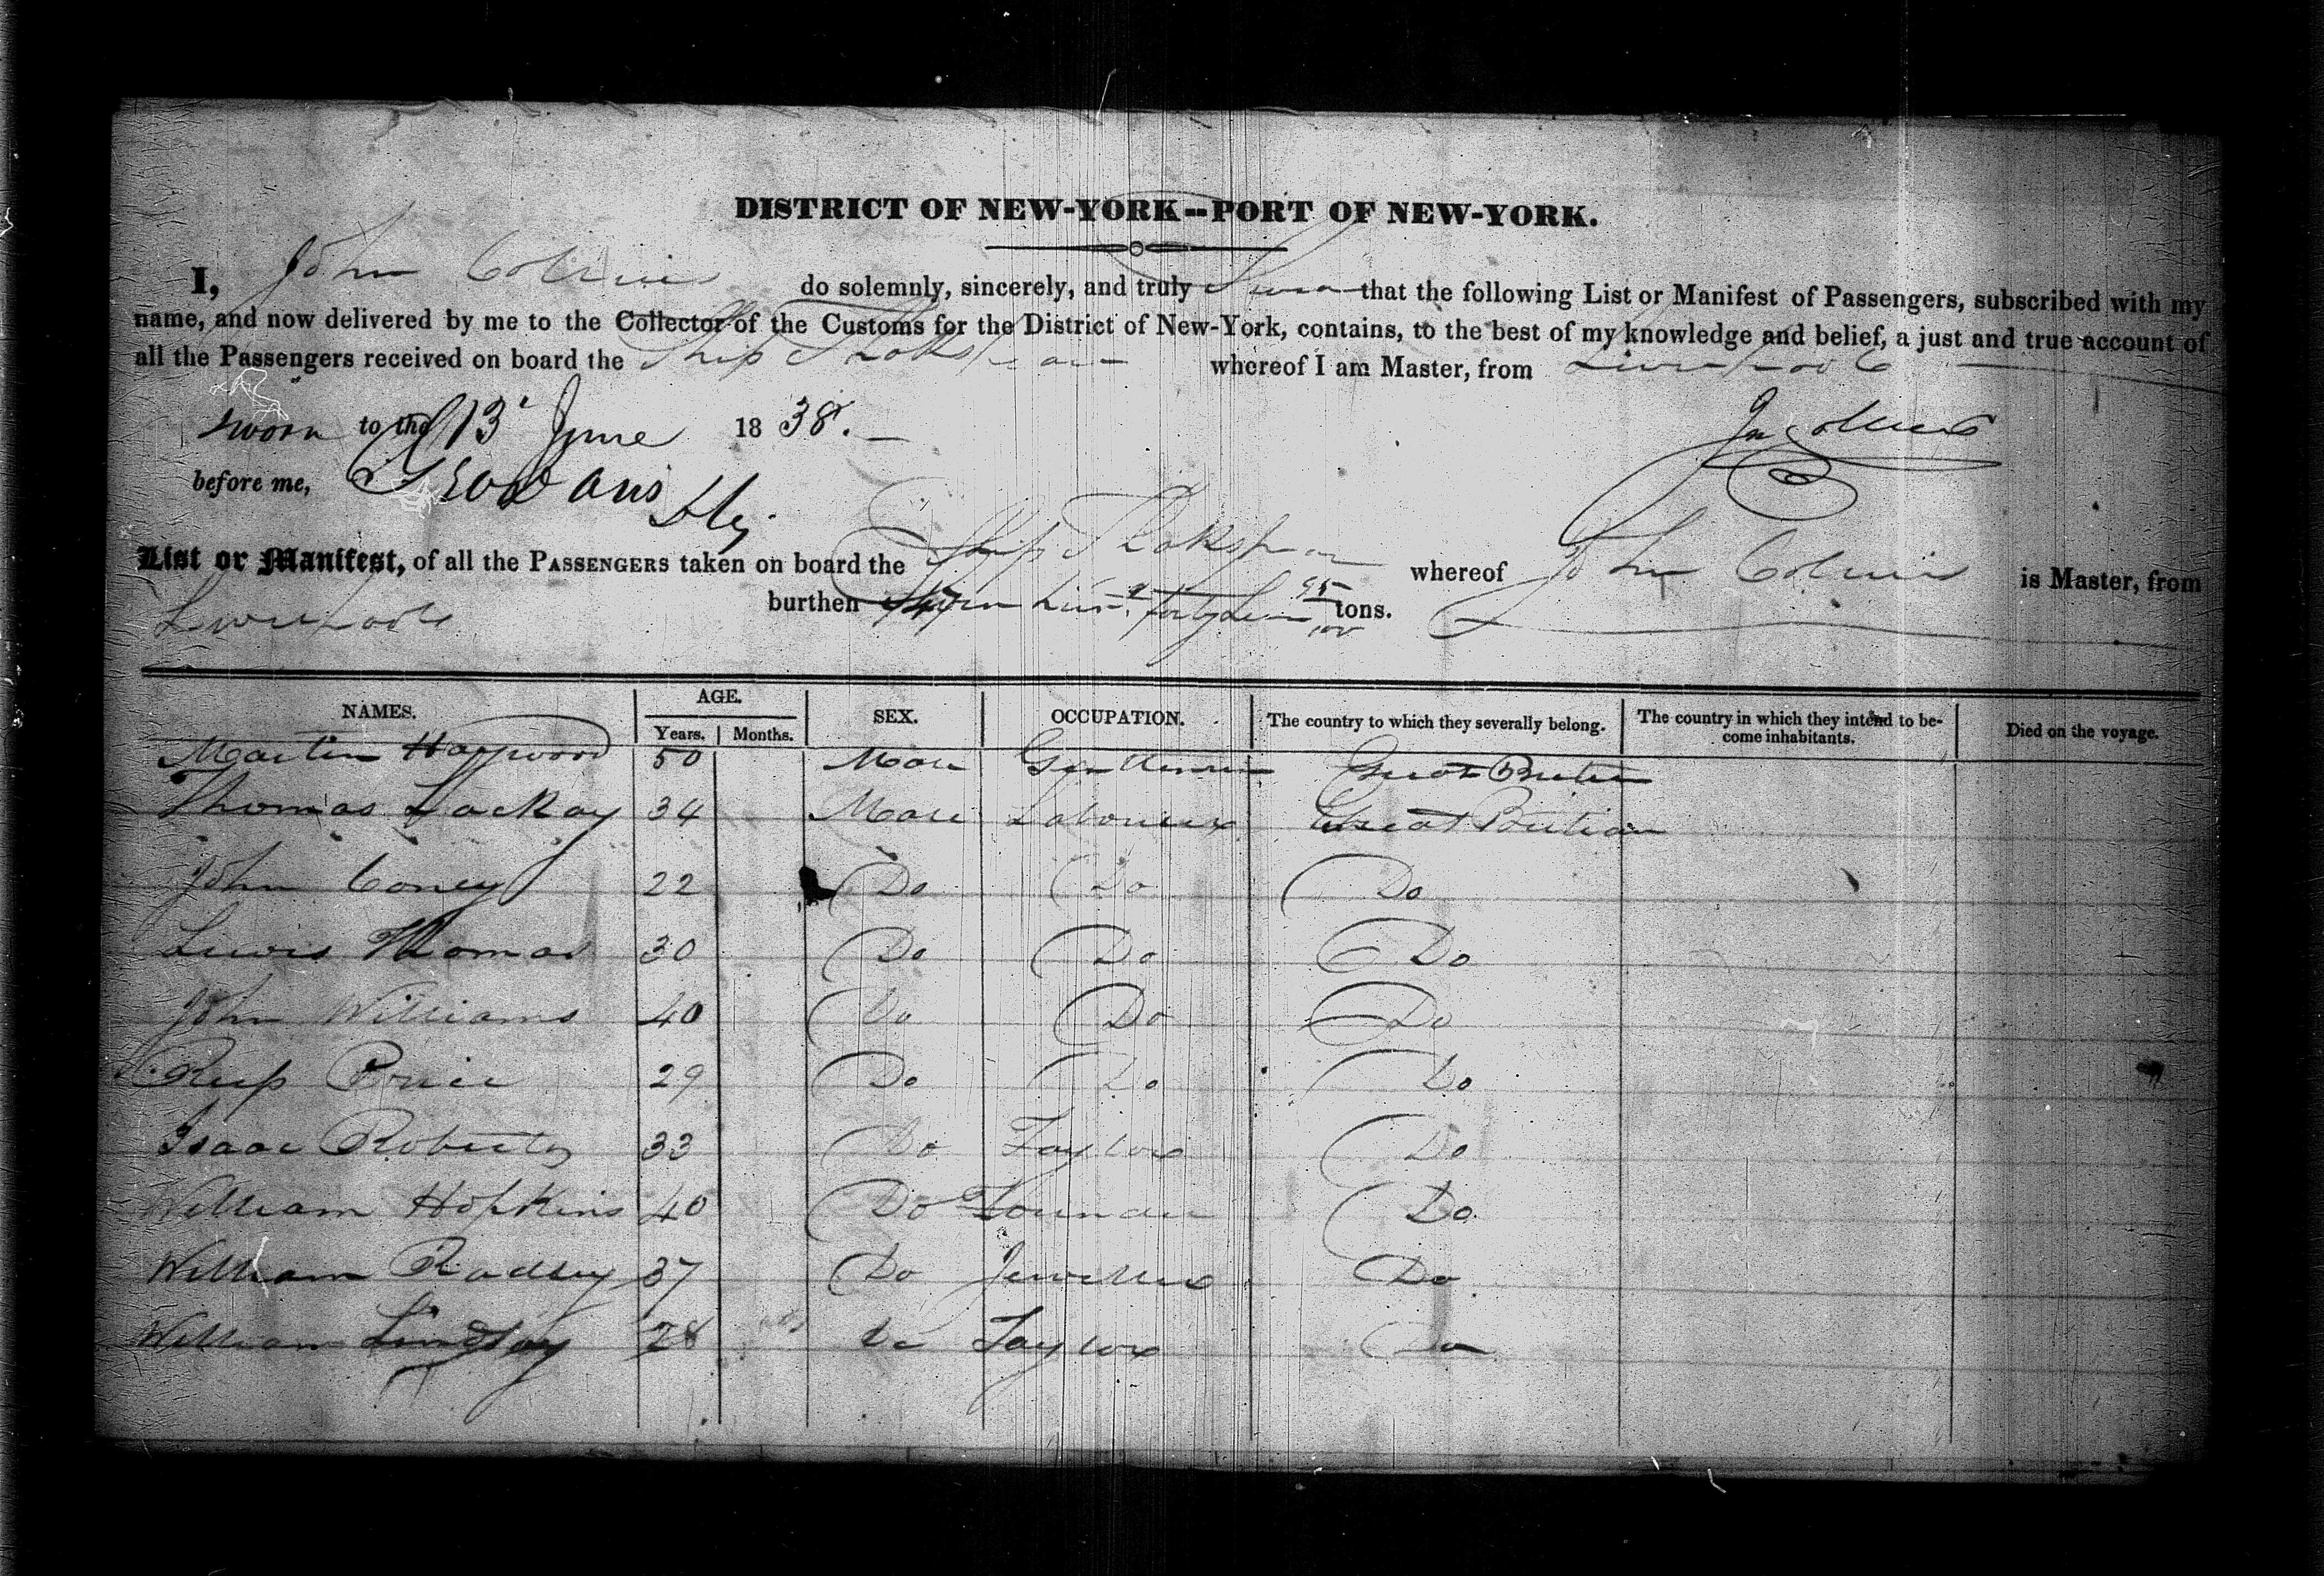 DISTRICT OF NEW-YORK--PORT OF NEW-YORK.
I, John Collins do solemnly, sincerely, and truly Swear that the following List or Manifest of Passengers, subscribed with my
name, and now delivered by me to the Collector of the Customs for the District of New-York, contains, to the best of my knowledge and belief, a just and true account of
all the Passengers received on board the Ship Shakspear whereof I am Master, from Liverpool
sworn to the 13 June 1838. Jn Collins
before me,
List or Manifest, of all the PASSENGERS taken on board the Ship Shakspear whereof John Collins is Master, from
Liverpool burthen tons.
NAMES. AGE. SEX. OCCUPATION. The country to which they severally belong. The country in which they intend to become inhabitants. Died on the voyage.
Years. Months.
Martin Haywood 50 Male Gentleman Great Britain
Thomas Lackay 34 Male Labourer Great Britian
John Coney 22 Do Do Do
Lewis Thomas 30 Do Do Do
John Williams 40 Do Do Do
Reess Price 29 Do Do Do
Isaac Roberts 33 Do Taylor Do
William Hopkins 40 Do Founder Do
William Radley 37 Do Jeweller Do
William Lindsay 28 Do Taylor Do